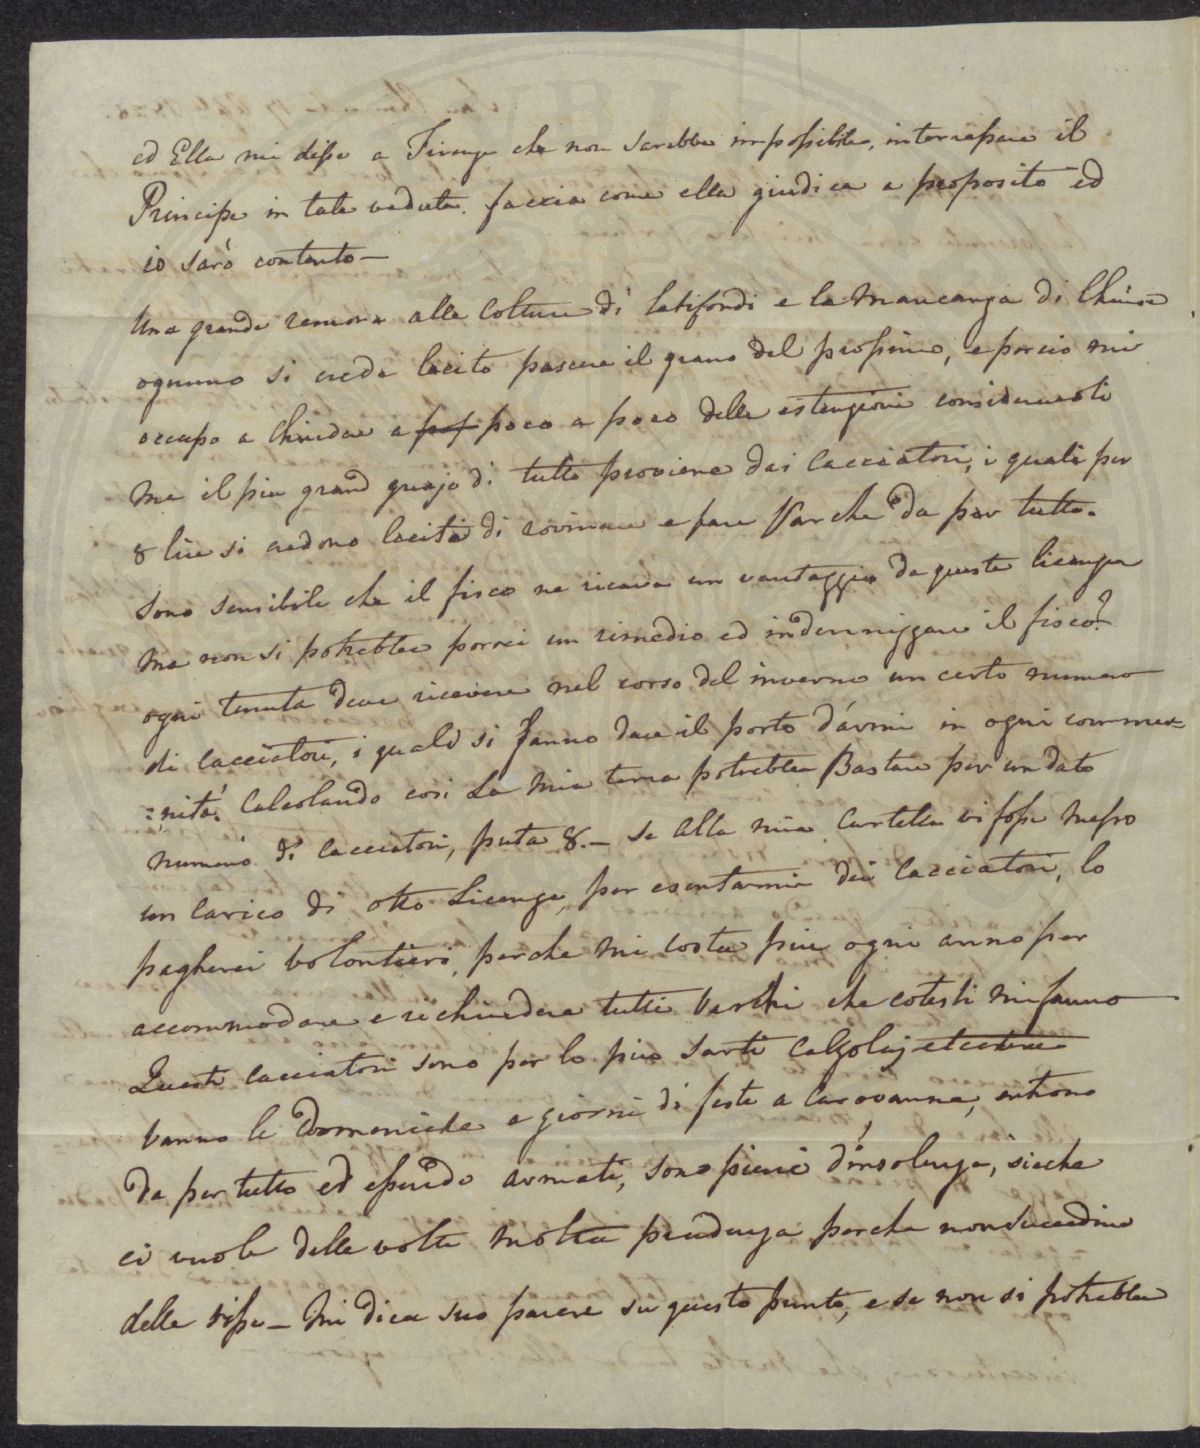 ed Ella mi disse a Firenze che non sarebbe impossibile, interessare il
Principe in tale veduta. faccia come ella giudica a proposito ed
io sarò contento —
Una grande remora alle Colture di latifondi e la Mancanza di Chiuse
ognuno si crede lecito pascere il grano del prossimo, e perciò mi
occupo a Chiudere a pof poco a poco delle estenzioni considerevoli
Ma il piu grand guajo di tutto proviene dai Cacciatori, i quali per
8 lire si credono lecito di rovinare e fare Varche da per tutto.
Sono sensibile che il fisco ne ricava un vantaggio da queste licenze
Ma non si potrebbe porrei un rimedio ed indennizzare il fisco?
ogni tenuta deve ricevere nel corso del inverno un certo numero
di Cacciatori, i quali si fanno dare il porto d'armi in ogni commu=
=nità. Calcolando così La Mia terra potrebbe Bastare per un dato
numero di Cacciatori, puta 8. — se alla mia Cartella vi fosse Messo
un Carico di otto Licenze, per esentarmi dei Cacciatori, lo
pagherei volontieri, perche Mi costa piu ogni anno per
accommodare e richiudere tutti Varchi che cotesti mi fanno
Questi Cacciatori sono per lo piu Sarti Calzolaj etcetera
Vanno le Domeniche e giorni di feste a Carovanne, entrono
Da per tutto ed essendo armati, sono pieni d'insolenza, sicche
ci vuole delle volte Molta prudenza perche non succedino
delle risse — Mi dica suo parere su questo punto, e se non si potrebbe